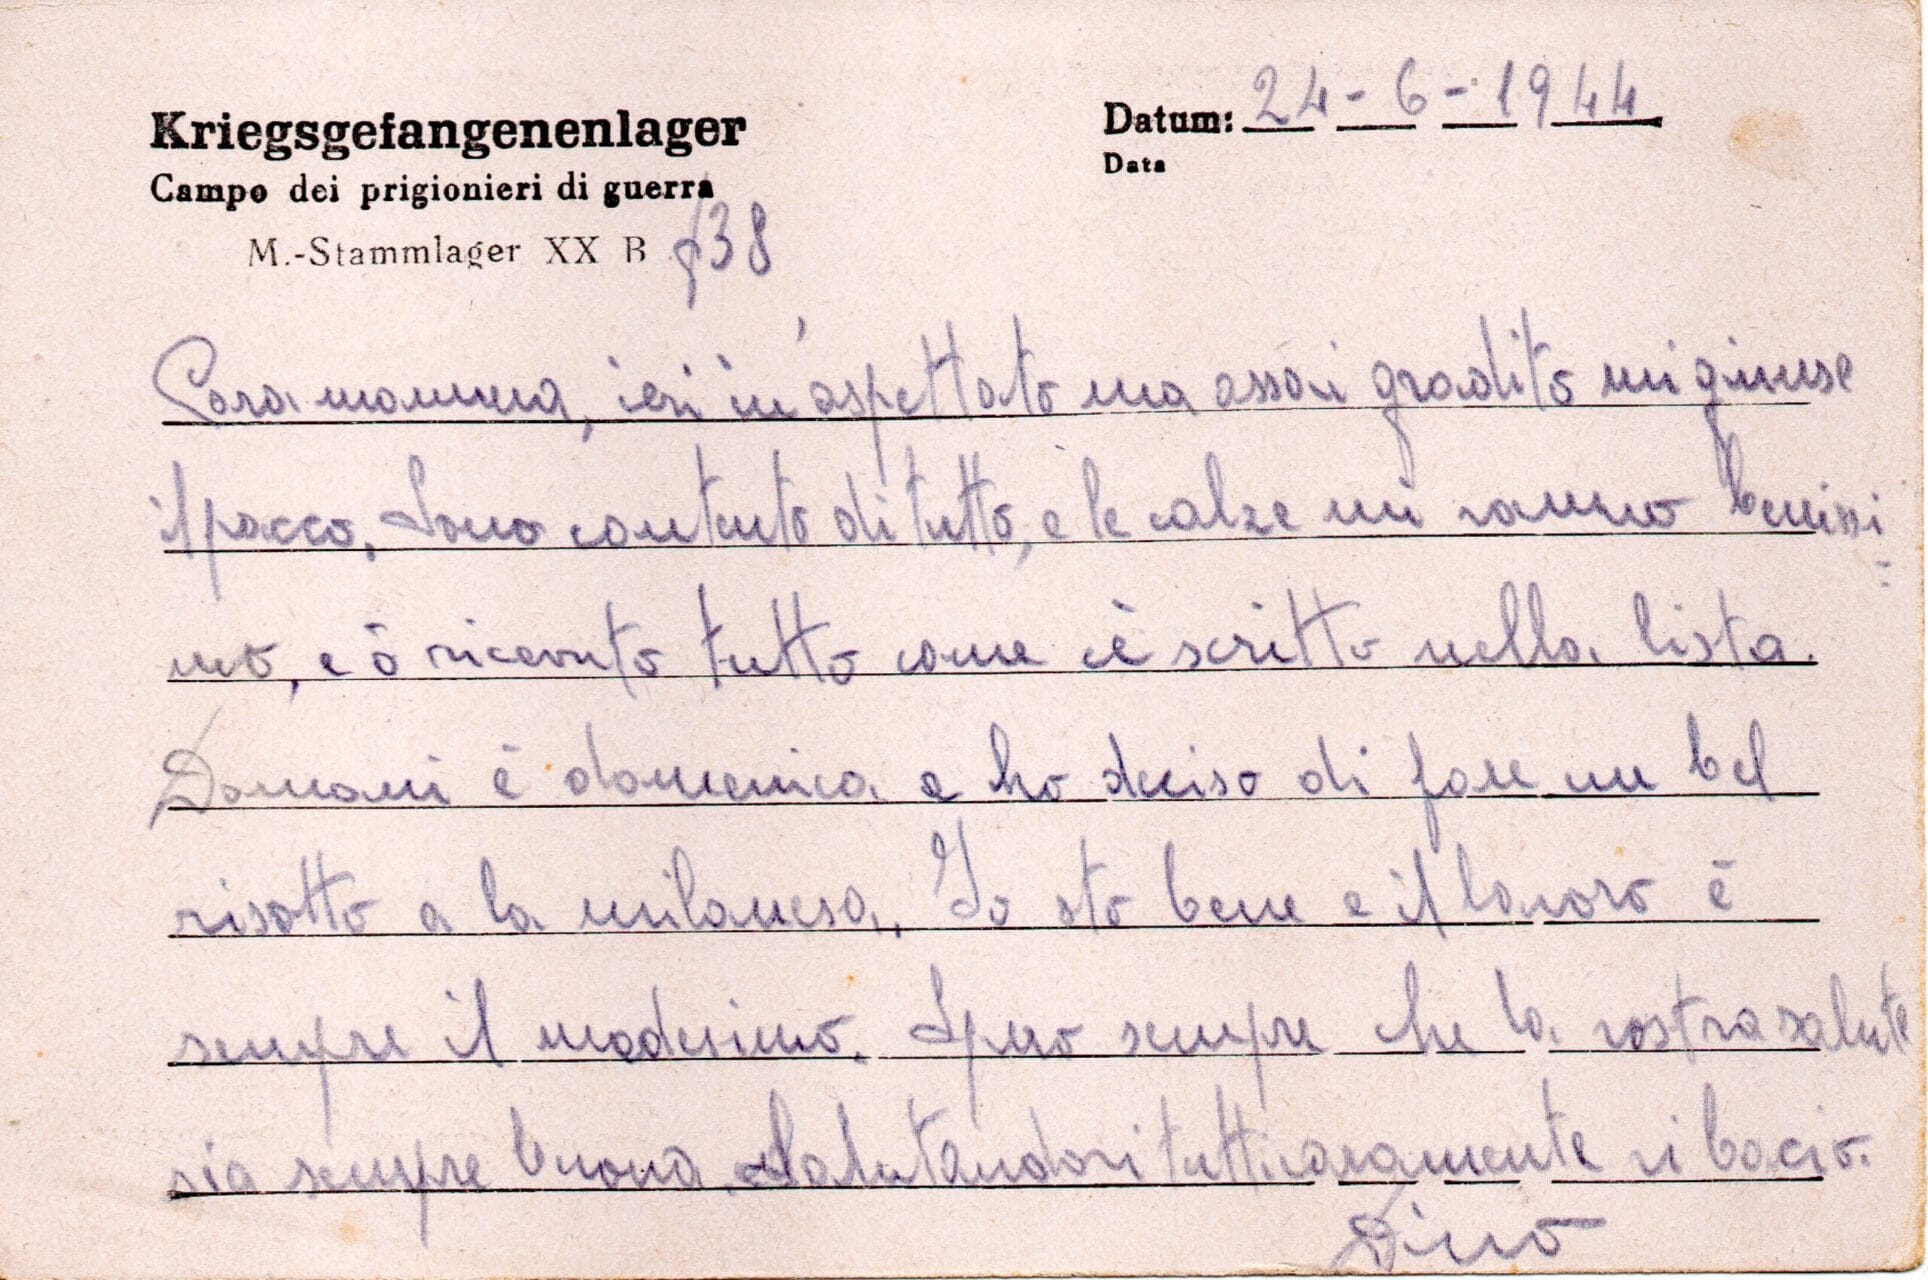 Kriegsgefangenenlager
Datum: 24-6-1944
Campo dei prigionieri di guerra
Data
M.-Stammlager XX B 938
Cara mamma, ieri in'aspettato ma assai gradito mi giunse
il pacco. Sono contento di tutto, e le calze mi vanno benissi
=
mo, e ò ricevuto tutto come c'è scritto nella lista.
Domani è domenica e ho deciso di fare un bel
risotto a la milanesa. Io sto bene e il lavoro è
sempre il medesimo. Spero sempre che la vostra salute
sia sempre buona. Salutandovi tutti caramente vi bacio.
Dino